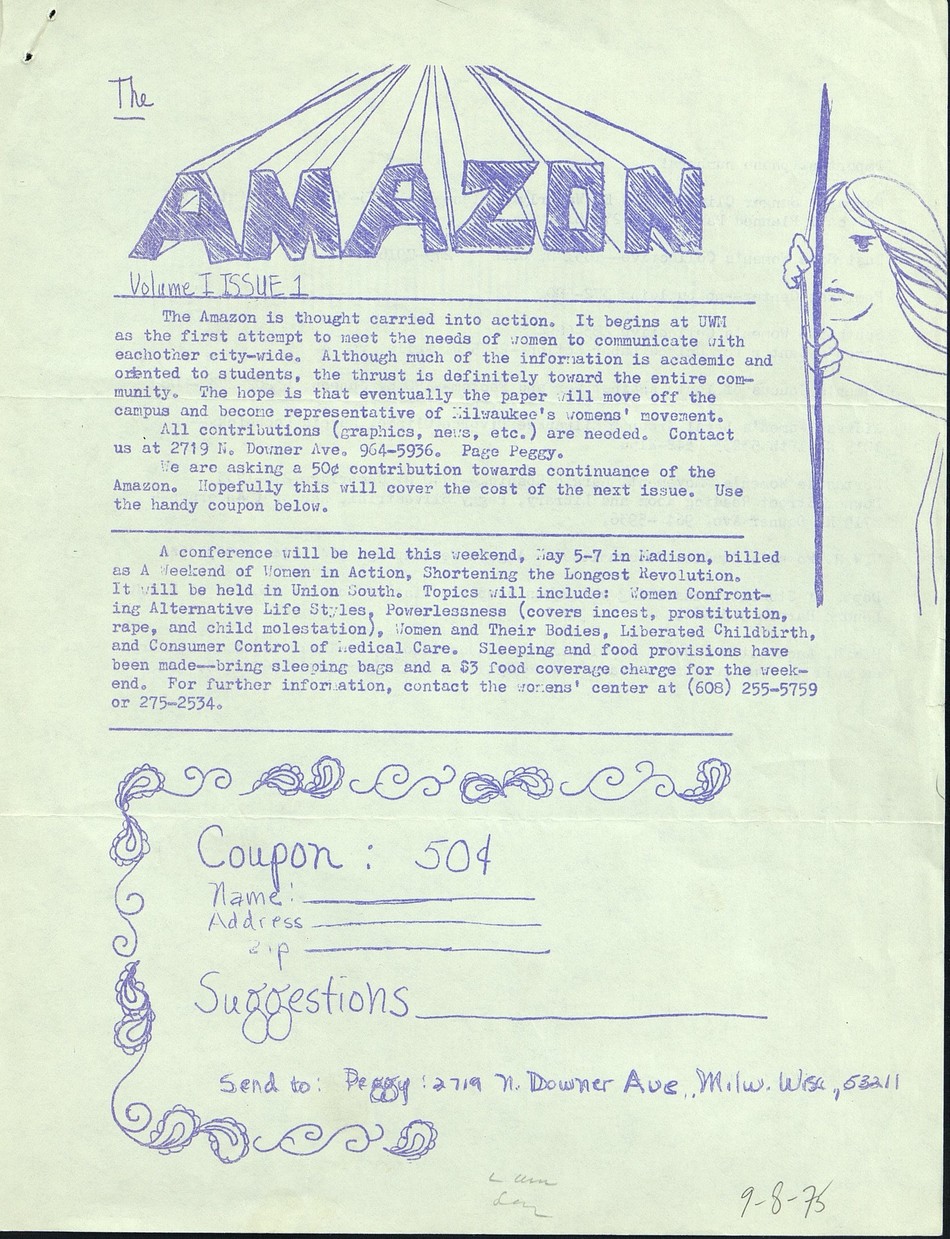 The
AMAZON
Volume I ISSUE 1
The Amazon is thought carried into action. It begins at UWM
as the first attempt to meet the needs of women to communicate with
eachother city-wide. Although much of the information is academic and
oriented to students, the thrust is definitely toward the entire com-
munity. The hope is that eventually the paper will move off the
campus and become representative of Milwaukee's womens' movement.
All contributions (graphics, news, etc.) are needed. Contact
us at 2719 N. Downer Ave. 964-5936. Page Peggy.
We are asking a 50¢ contribution towards continuance of the
Amazon. Hopefully this will cover the cost of the next issue. Use
the handy coupon below.
A conference will be held this weekend, May 5-7 in Madison, billed
as A Weekend of Women in Action, Shortening the Longest Revolution.
It will be held in Union South. Topics will include: Women Confront-
ing Alternative Life Styles, Powerlessness (covers incest, prostitution,
rape, and child molestation), Women and Their Bodies, Liberated Childbirth,
and Consumer Control of Medical Care. Sleeping and food provisions have
been made--bring sleeping bags and a $3 food coverage charge for the week-
end. For further information, contact the womens' center at (608) 255-5759
or 275-2534.
Coupon : 50¢
Name:
Address
Zip
Suggestions
Send to: Peggy : 2719 N. Downer Ave., Milw. Wisc., 53211
9-8-75